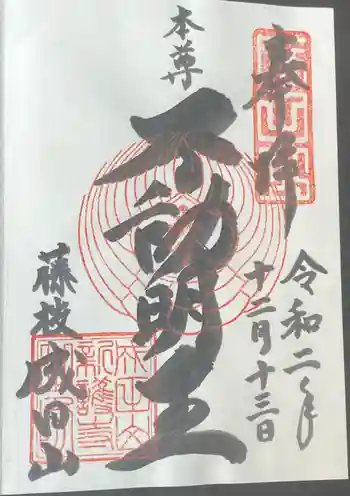 奉拝
令和二年
十二月十三日
本尊
不動明王
藤枝成田山